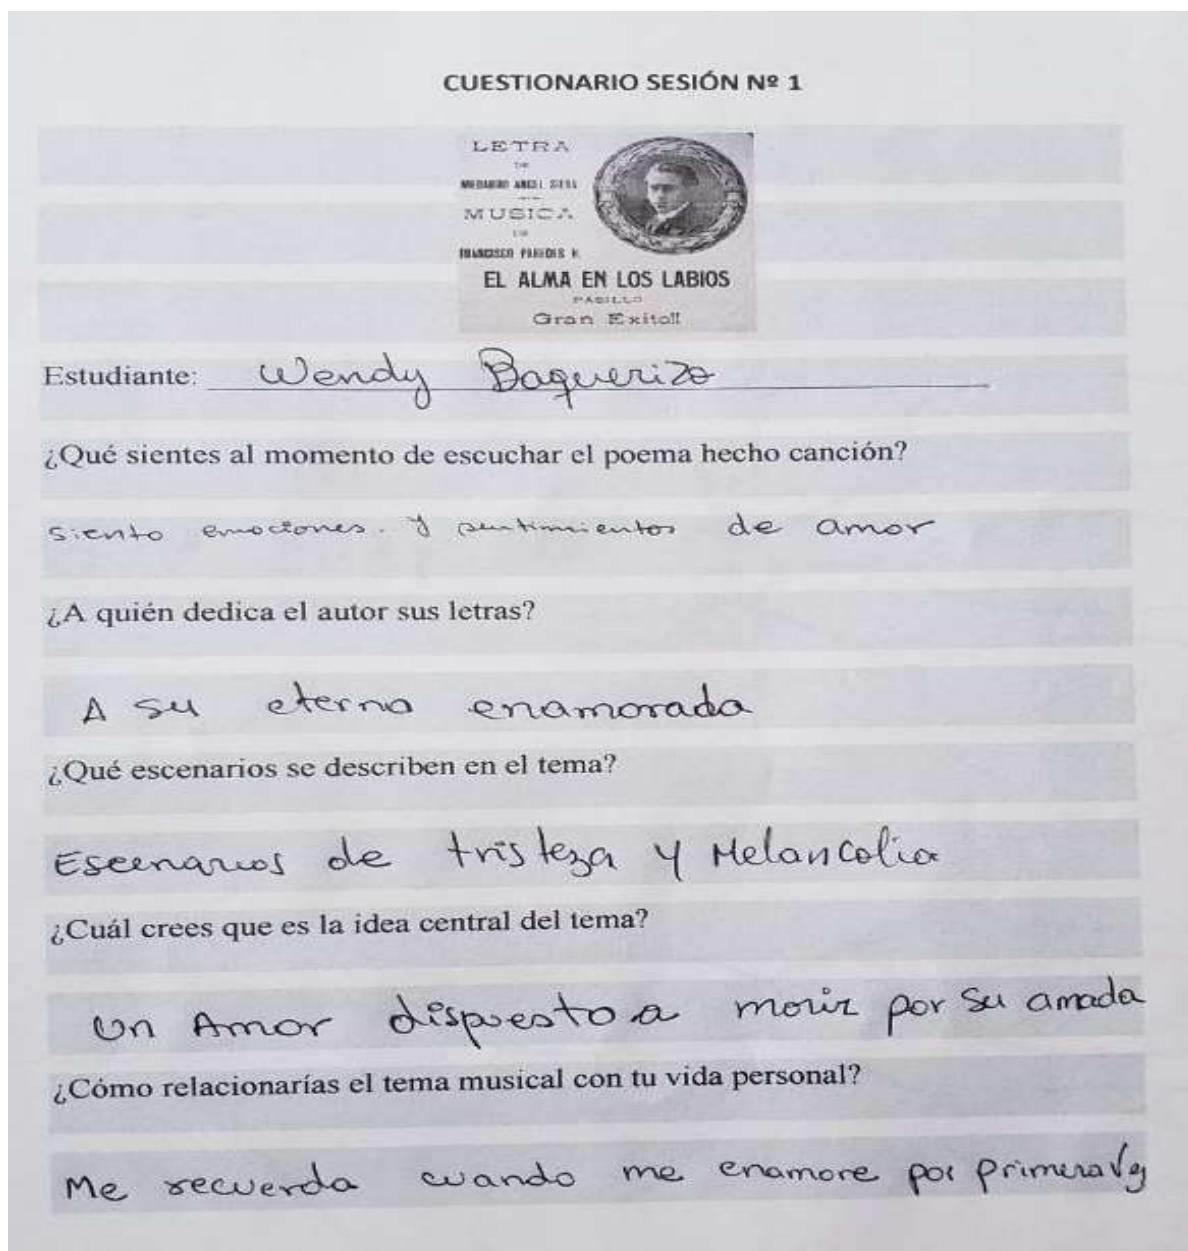 CUESTIONARIO SESIÓN Nº 1
LETRA
DE
MEDARDO ANGEL SILVA
MUSICA
DE
FRANCISCO PAREDES H.
EL ALMA EN LOS LABIOS
PASILLO
Gran Exito!!
Estudiante: Wendy Baquerizo
¿Qué sientes al momento de escuchar el poema hecho canción?
siento emociones. y sentimientos de amor
¿A quién dedica el autor sus letras?
A su eterna enamorada
¿Qué escenarios se describen en el tema?
Escenarios de tristeza y Melancolia
¿Cuál crees que es la idea central del tema?
Un Amor dispuesto a morir por su amada
¿Cómo relacionarías el tema musical con tu vida personal?
Me recuerda cuando me enamore por primera vez